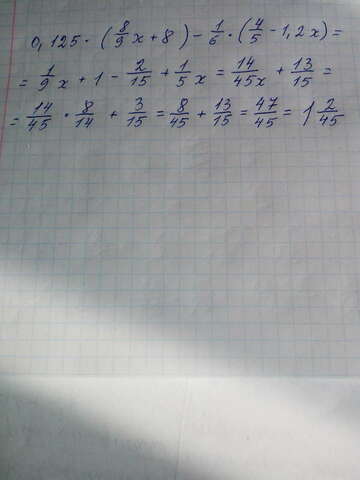 0,125 · (8/9 x + 8) - 1/6 · (4/5 - 1,2x) =
= 1/9 x + 1 - 2/15 + 1/5 x = 14/45x + 13/15 =
= 14/45 · 8/14 + 3/15 = 8/45 + 13/15 = 47/45 = 1 2/45